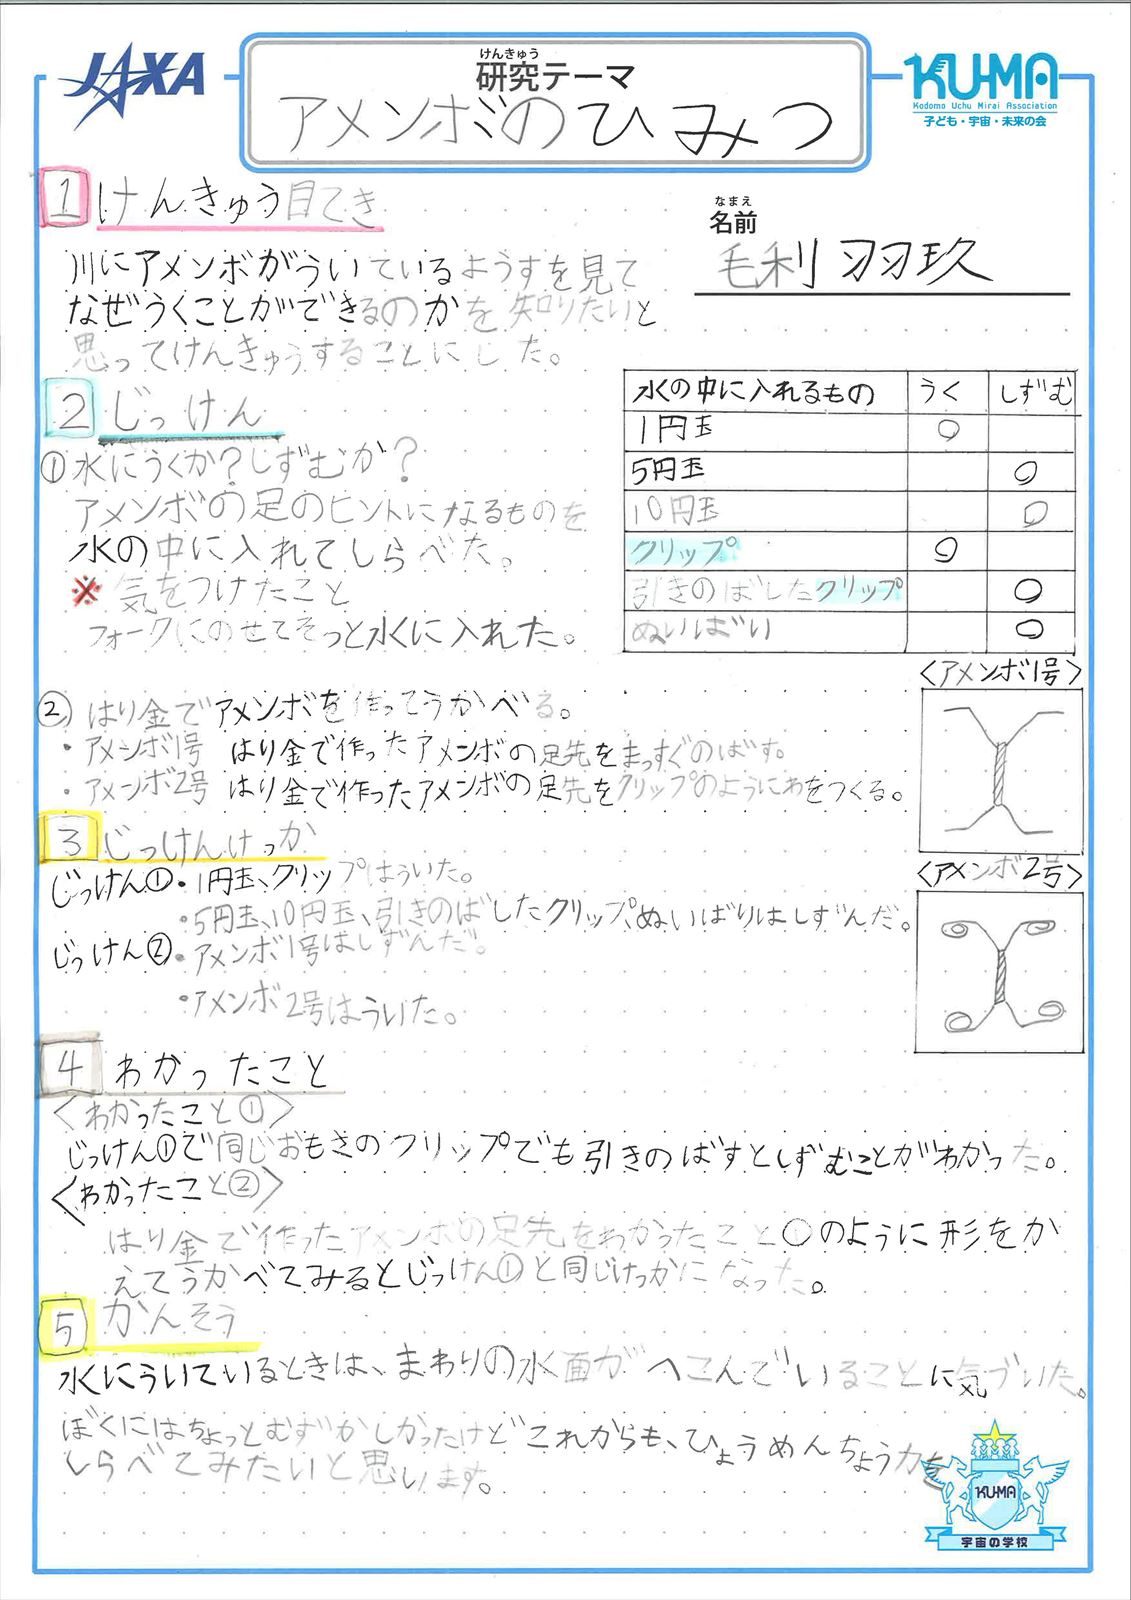 JAXA
けんきゅう
研究テーマ
アメンボのひみつ
KU-MA
Kodomo Uchu Mirai Association
子ども・宇宙・未来の会
1 けんきゅう目てき
なまえ
名前
毛利羽玖
川にアメンボがういているようすを見て
なぜうくことができるのかを知りたいと
思ってけんきゅうすることにした。
2 じっけん
①水にうくか?しずむか?
アメンボの足のヒントになるものを
水の中に入れてしらべた。
※気をつけたこと
フォークにのせてそっと水に入れた。
水の中に入れるもの うく しずむ
1円玉 ○
5円玉 ○
10円玉 ○
クリップ ○
引きのばしたクリップ ○
ぬいばい ○
②はり金でアメンボを作ってうかべる。
・アメンボ1号 はり金で作ったアメンボの足先をまっすぐのばす。
・アメンボ2号 はり金で作ったアメンボの足先をクリップのようにわをつくる。
<アメンボ1号>
<アメンボ2号>
3 じっけんけっか
じっけん①・1円玉、クリップはういた。
・5円玉、10円玉、引きのばしたクリップ、ぬいばりはしずんだ。
じっけん②・アメンボ1号はしずんだ。
・アメンボ2号はういた。
4 わかったこと
<わかったこと①>
じっけん①で同じおもさのクリップでも引きのばすとしずむことがわかった。
<わかったこと②>
はり金で作ったアメンボの足先をわかったこと①のように形をか
えてうかべてみるとじっけん①と同じけっかになった。
5 かんそう
水にういているときは、まわりの水面がへこんでいることに気づいた。
ぼくにはちょっとむずかしかったけどこれからも、ひょうめんちょう力を
しらべてみたいと思います。
KU-MA
宇宙の学校